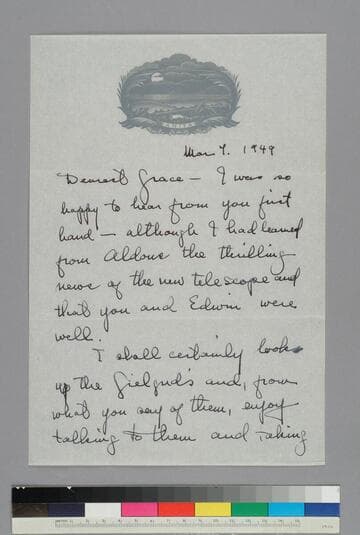 ANITA
Mar 7. 1949
Dearest Grace – I was so
happy to hear from you first
hand – although I had learned
from Aldous the thrilling
news of the new telescope and
that you and Edwin were
well.
I shall certainly look
up the Gielgud's and, from
what you say of them, enjoy
talking to them and taking